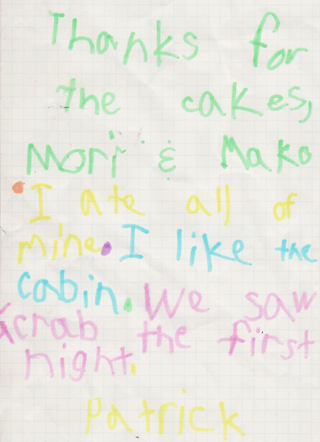 Thanks for
the cakes,
Mori & Mako
I ate all of
mine. I like the
cabin. We saw
a crab the first
night.
Patrick